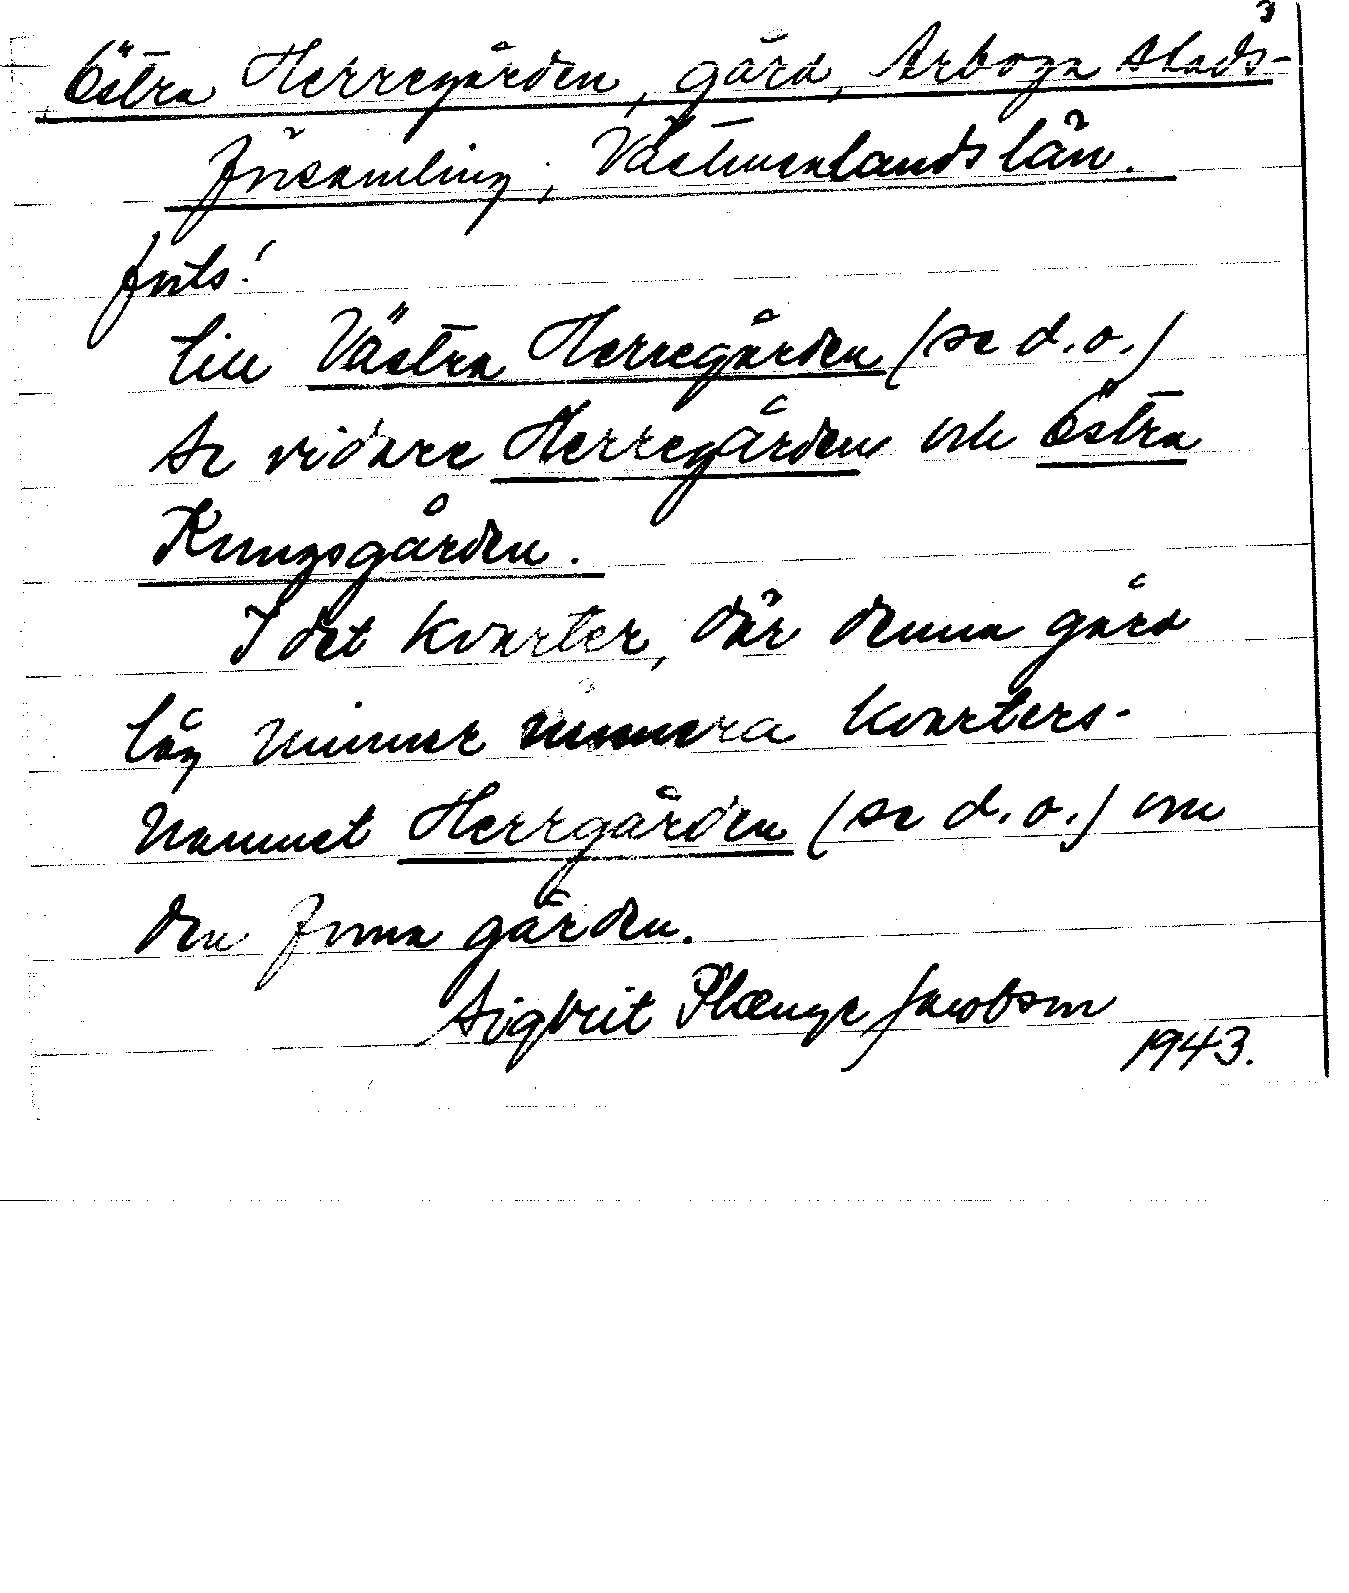 3
Östra Herregården, gård, Arboga stads-
församling, Västmanlands län.
forts!
till Västra Herregården (se d.o.)
Se vidare Herregården och Östra
Kungsgården.
I det kvarter, där denna gård
låg minner numera kvarters-
namnet Herrgården (se d.o.) om
den forna gården.
Sigbrit Plænge Jacobson
1943.